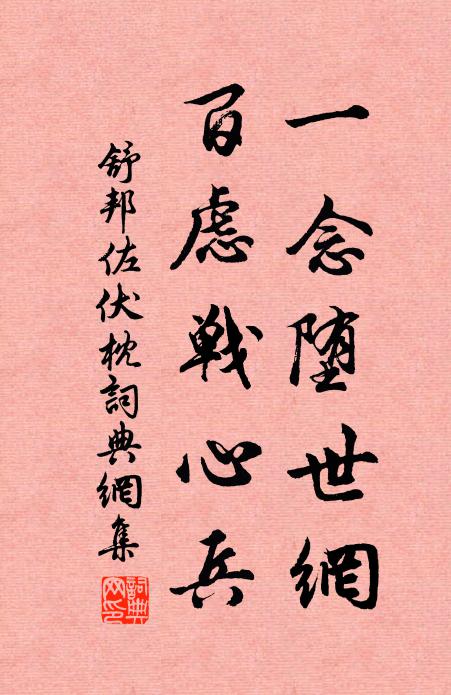 一念堕世網
百慮戦心兵
舒邦佐伏枕詞典網集
詞典
网印